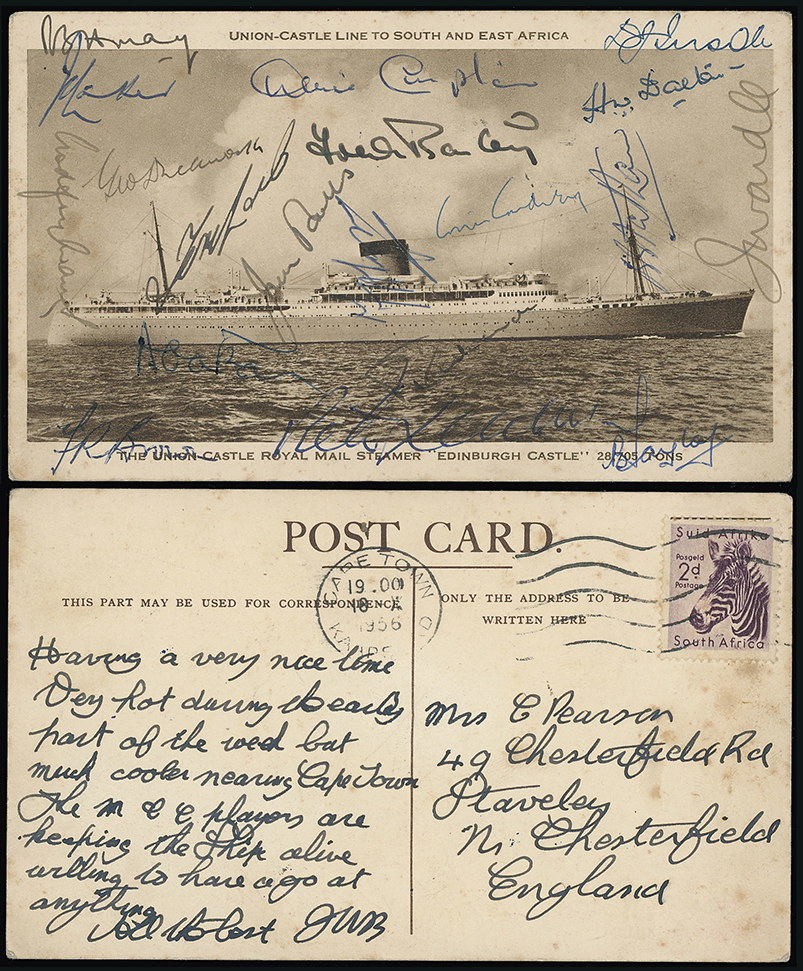 UNION-CASTLE LINE TO SOUTH AND EAST AFRICA
Denis Compton
Hw. Dalton
Geo Duckworth
Trevor Bailey
J Wardle
Jim Parks
Colin Cowdrey
Peter Loader
THE UNION-CASTLE ROYAL MAIL STEAMER "EDINBURGH CASTLE" 28,705 TONS
POST CARD.
THIS PART MAY BE USED FOR CORRESPONDENCE
ONLY THE ADDRESS TO BE
WRITTEN HERE
CAPE TOWN
19.00
1956
Suid-Afrika
Posgeld
2d
Postage
South Africa
Having a very nice time
Very hot during the early
part of the week but
much cooler nearing Cape Town
The M C C players are
keeping the Ship alive
willing to have a go at
anything
All the best JWB
Mrs C Pearson
49 Chesterfield Rd
Staveley
Nr. Chesterfield
England